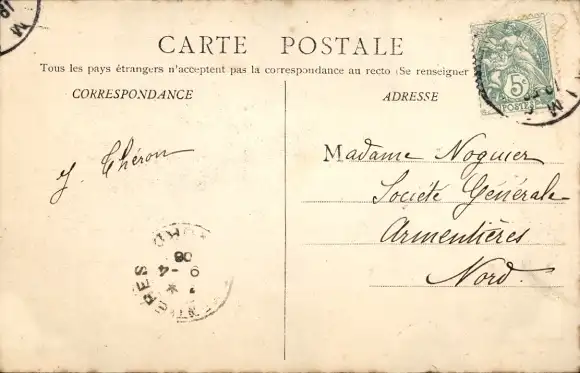 CARTE POSTALE
Tous les pays étrangers n'acceptent pas la correspondance au recto (Se renseigner
CORRESPONDANCE
ADRESSE
5c
POSTES
J. Théron
Madame Noguier
Société Générale
Armentières
Nord.